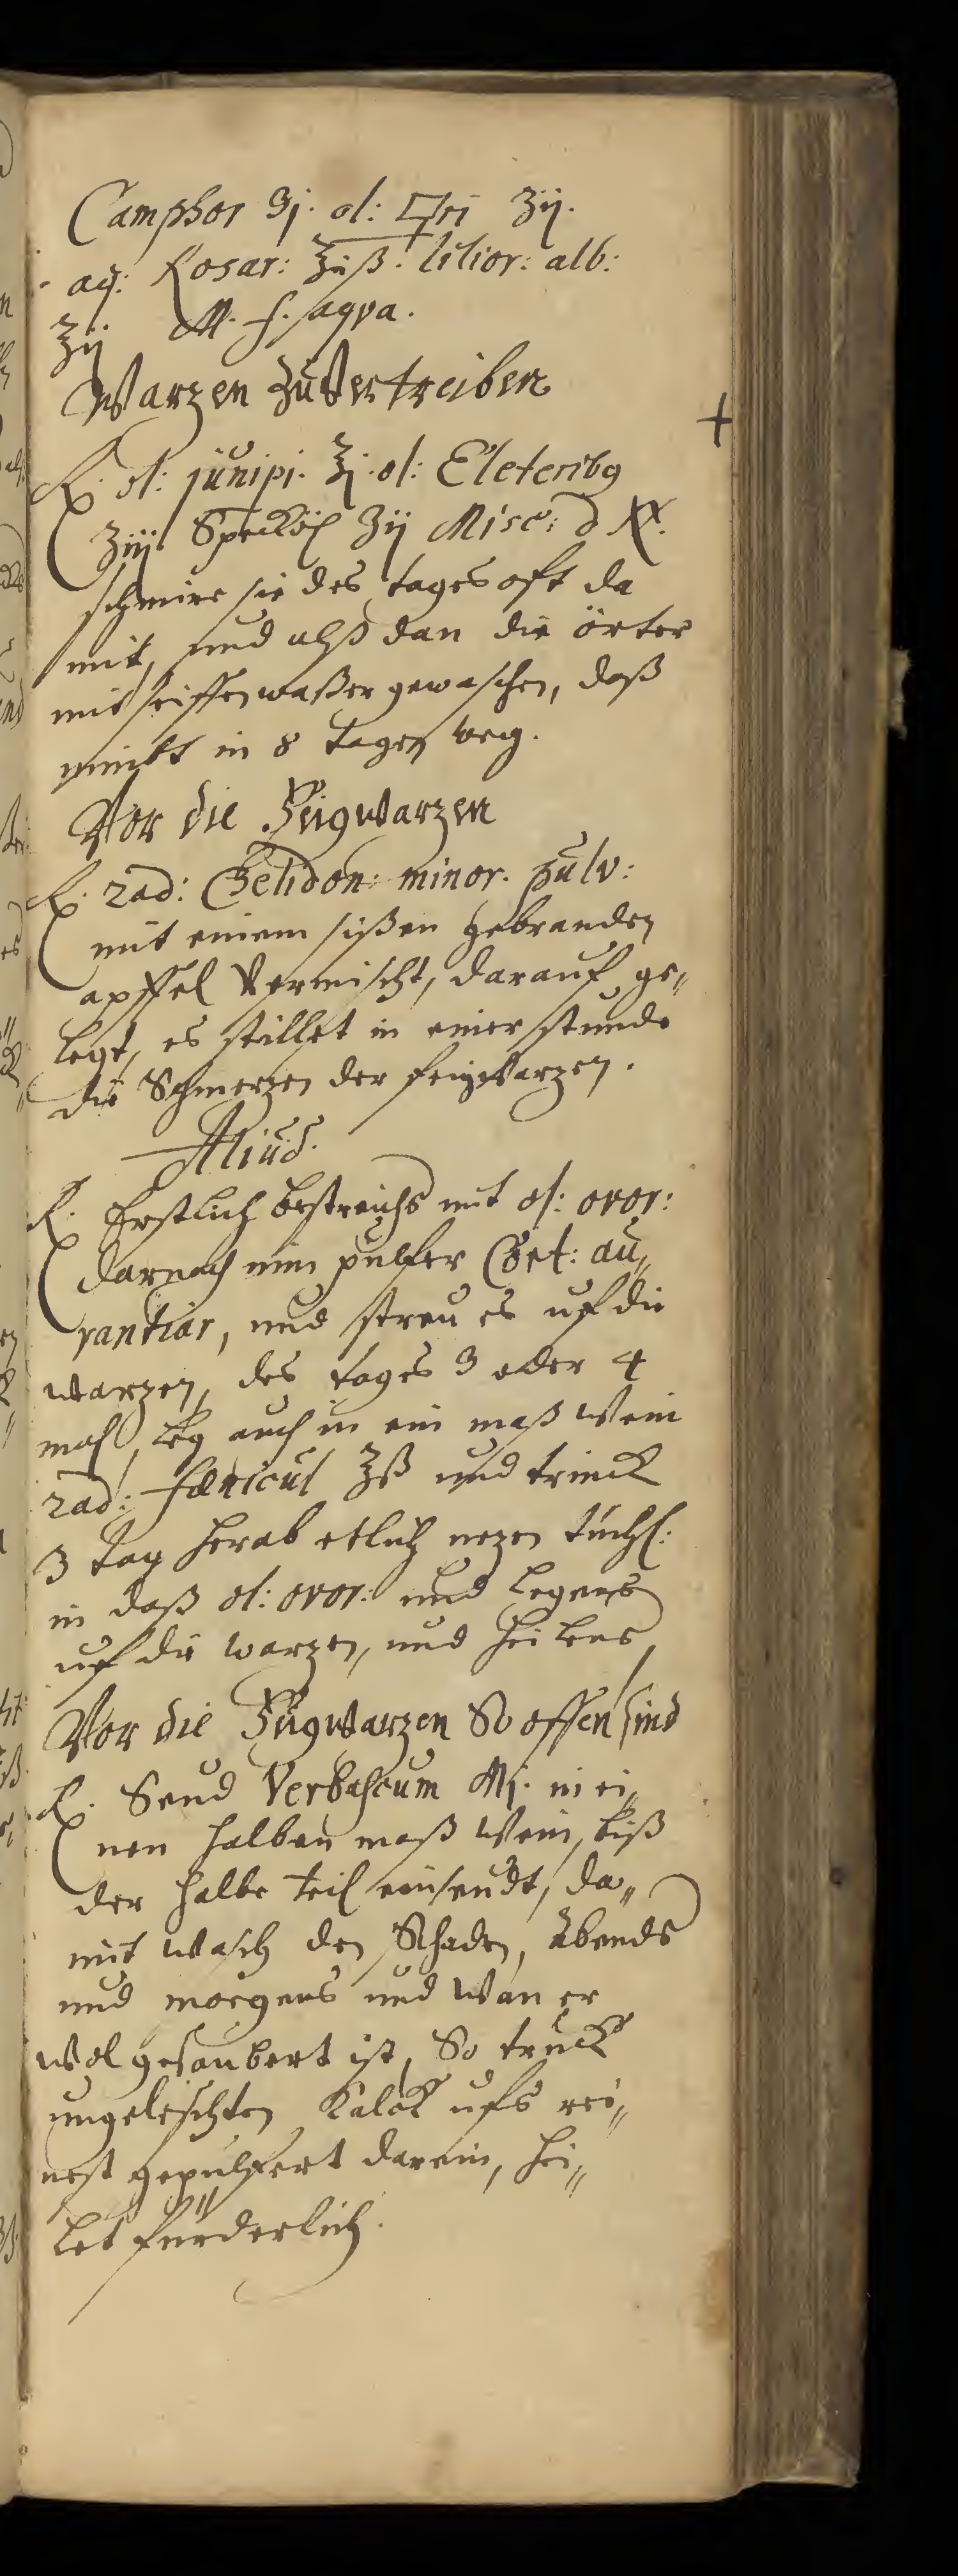 Camphor ℈j. ol: 🜿ri ʒij.
aq: Rosar: ℥iiß. lilior: alb:
℥ij M. f. aqva.
Warzen zu Vertreiben
+
℞. ol: junipi. ℥j. ol:
ʒiij. Specköl ʒij Misc:
schmire sie des tages oft da
mit, und alß dan die örter
mit seiffenwaßer gewaschen, daß
nimbt in 8 tagen weg.
Vor die Feigwarzen
℞. rad: Chelidon: minor. pulv:
mit einem süßen gebranden
apffel Vermischt, darauf ge„
legt, es stillet in einer stunde
die Schmerzen der feigwarzen.
Aliud.
℞. Erstlich bestreichs mit ol: ovor:
darnach nim pulfer Cort: au„
rantior, und streu es uf die
warzen, des tages 3 oder 4
mahl, leg auch in ein maß Wein
rad: fœnicul ℥ß und trinck
3 tag herab etlich nezen tüchl:
in daß ol: ovor: und legens
uf die warzen, und heilens,
Vor die Feigwarzen So offen sind
℞. Seud Verbascum Mj. in ei„
nen halben maß Wein, biß
der halbe teil einseudt, da„
mit wasch den Schaden, Abends
und morgens und wan er
wol gesaubert ist, So truck
ungeleschten Kalck ufs rei„
nest gepulfert darein, hei„
let fürderlich.